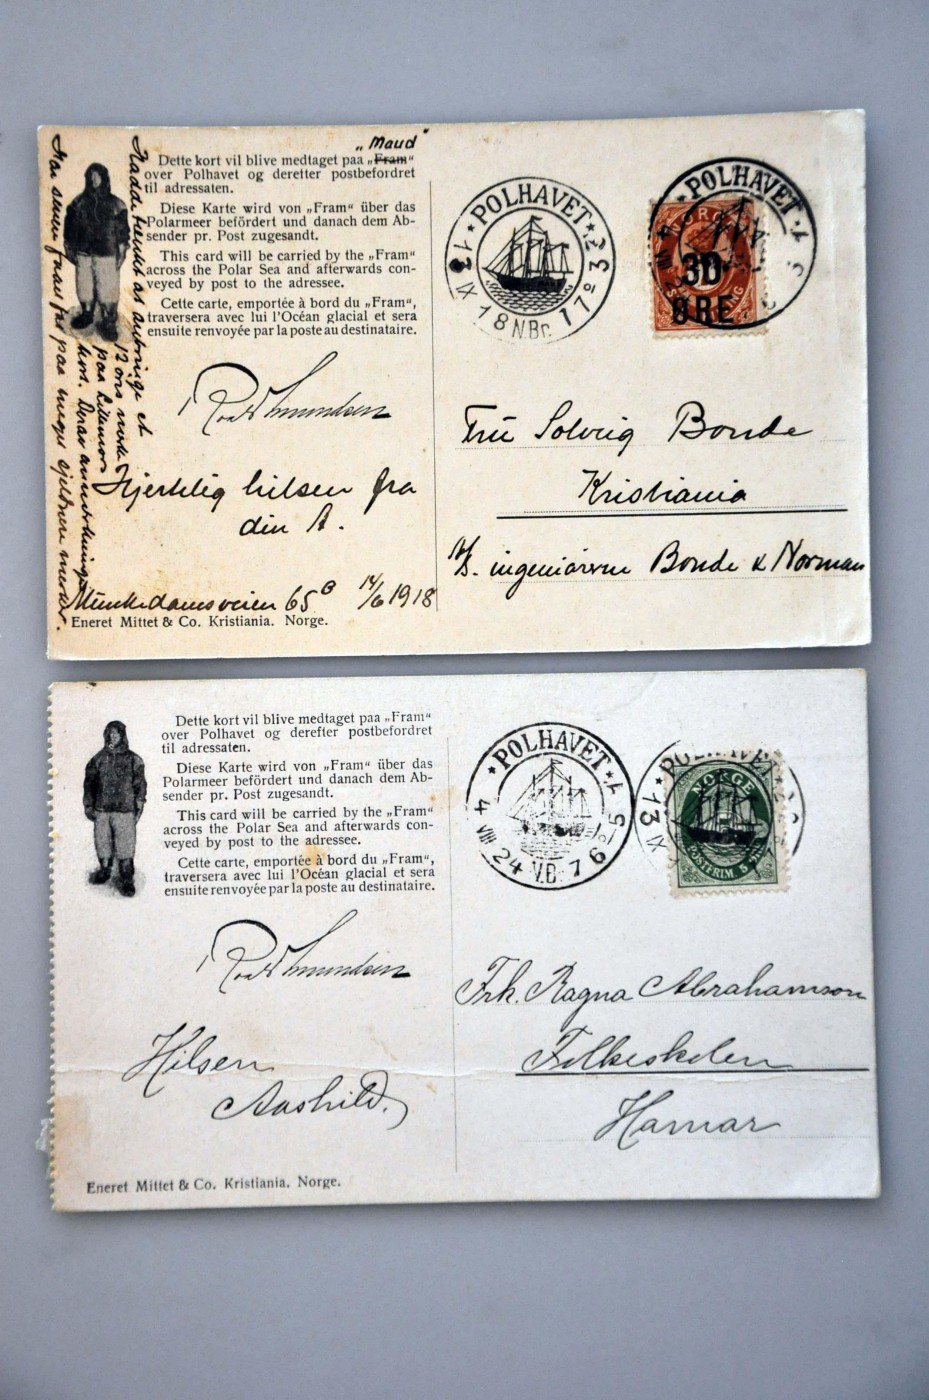 „Maud“
Dette kort vil blive medtaget paa „Fram“
over Polhavet og deretter postbefordret
til adressaten.
Diese Karte wird von „Fram“ über das
Polarmeer befördert und danach dem Ab-
sender pr. Post zugesandt.
This card will be carried by the „Fram“
across the Polar Sea and afterwards con-
veyed by post to the adressee.
Cette carte, emportée à bord du „Fram“,
traversera avec lui l'Océan glacial et sera
ensuite renvoyée par la poste au destinataire.
Roald Amundsen
Hjertelig hilsen fra
din A.
Munkedamsveien 65 14/6 1918
Eneret Mittet & Co. Kristiania. Norge.
POLHAVET
13 IX 18 N.Br. 170 23
POLHAVET
NORGE
30
ØRE
Fru Solveig Bonde
Kristiania
ingeniørerne Bonde & Norman
Dette kort vil blive medtaget paa „Fram“
over Polhavet og derefter postbefordret
til adressaten.
Diese Karte wird von „Fram“ über das
Polarmeer befördert und danach dem Ab-
sender pr. Post zugesandt.
This card will be carried by the „Fram“
across the Polar Sea and afterwards con-
veyed by post to the adressee.
Cette carte, emportée à bord du „Fram“,
traversera avec lui l'Océan glacial et sera
ensuite renvoyée par la poste au destinataire.
Roald Amundsen
Hilsen
Aashild.
Eneret Mittet & Co. Kristiania. Norge.
POLHAVET
4 VIII 24 V.B. 76
POLHAVET
13 XI
NORGE
POSTFRIM. 5
Frk. Ragna Abrahamson
Folkeskolen
Hamar